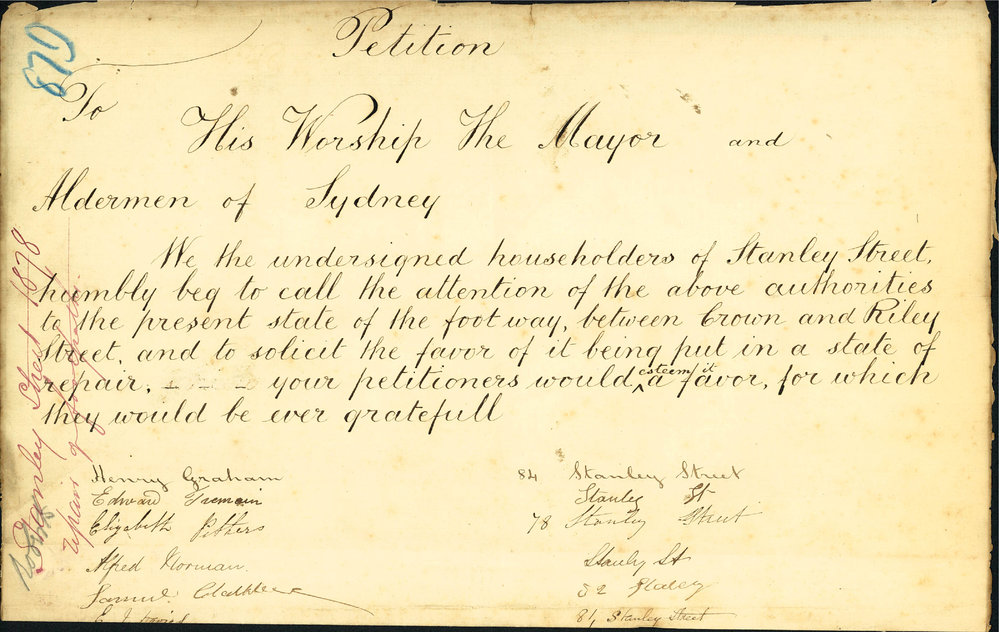 870
Petition
To
His Worship The Mayor and
Aldermen of Sydney
We the undersigned householders of Stanley Street,
humbly beg to call the attention of the above authorities
to the present state of the foot way, between Crown and Riley
Street, and to solicit the favor of it being put in a state of
repair, your petitioners would esteem it a favor, for which
they would be ever gratefull
Henry Graham 84 Stanley Street
Edward Tremain Stanley St
Elizabeth Pethers 78 Stanley Street
Alfred Norman. Stanley St
Samuel 52
E. J. Davies 84 Stanley Street
Stanley Street 1878
repairs of footpath